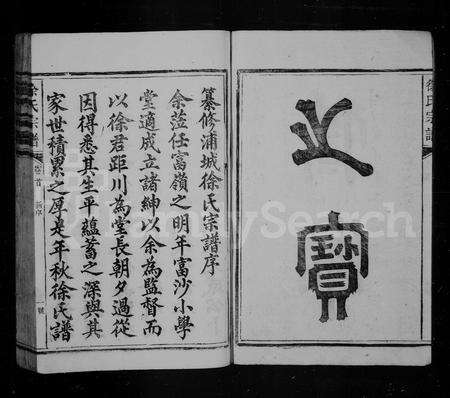 之
寶
徐氏宗譜
纂修浦城徐氏宗譜序
余蒞任富嶺之明年富沙小學
堂適成立諸紳以余為監督而
以徐君距川為堂長朝夕過從
因得悉其生平蘊蓄之深與其
家世積累之厚是年秋徐氏譜
徐氏宗譜
卷首
序
一號
FamilySearch